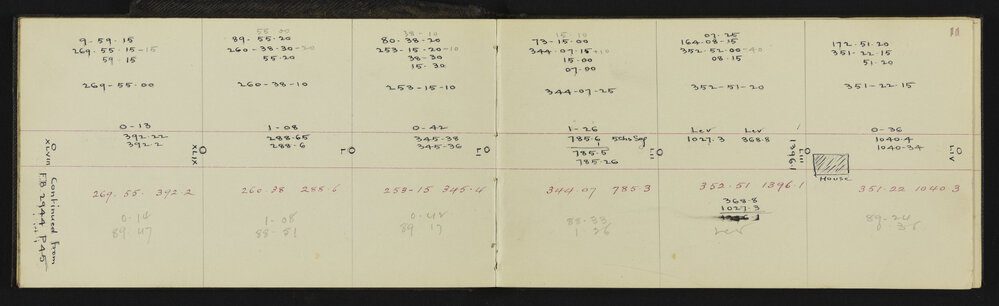 9-59-15
269-55-15-15
59-15
269-55-00
0-13
392.22
392.2
XLVIII
269.55. 392.2
0.14
89.47
Continued From
F.B 2944 P45
55 00
89-55-20
260-38-30-20
55.20
260-38-10
1-08
288.65
288.6
XLIX
260.38 288.6
1.08
88-51
38-10
80-38-20
253-15-20-10
38-30
15-30
253-15-10
0-42
345-38
345-36
L
253-15 345.4
0.42
89 17
15 10
73-15-00
344-07-15+10
15.00
07-00
344-07-25
1-26
785.6 5 chs Sag
1
785.5
785.26
LI
344.07 785.3
88-33
1-26
07.25
164-08-15
352-52-00-40
08.15
352-51-20
Lev Lev
1027.3 368.8
LII
352.51 1396.1
368.8
1027.3
1396.1
Lev
11
172-51-20
351-22-15
51.20
351-22-15
0-36
1040.4
1040.34
1396.1
LIII
LIV
HOUSE
351.22 1040.3
89-24
0.36